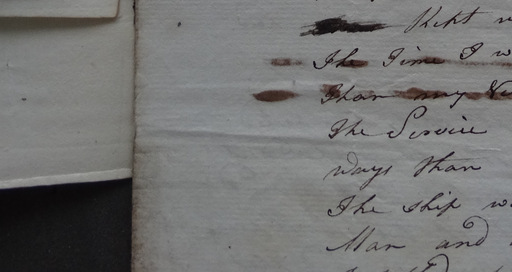 Kept
The Time I
Than my
The Service
ways than
The ship
Man and